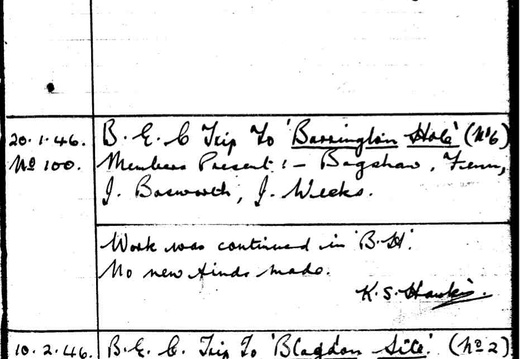 20.1.46. B. E. C Trip To 'Barrington Hole' (Nº6)
Nº 100. Members Present :- Bagshaw, Fenn,
J. Bosworth, J. Weeks.
Work was continued in 'B.H'.
No new finds made.
K. S. Hawkins.
10.2.46. B. E. C. Trip To 'Blagdon Site' (Nº2)